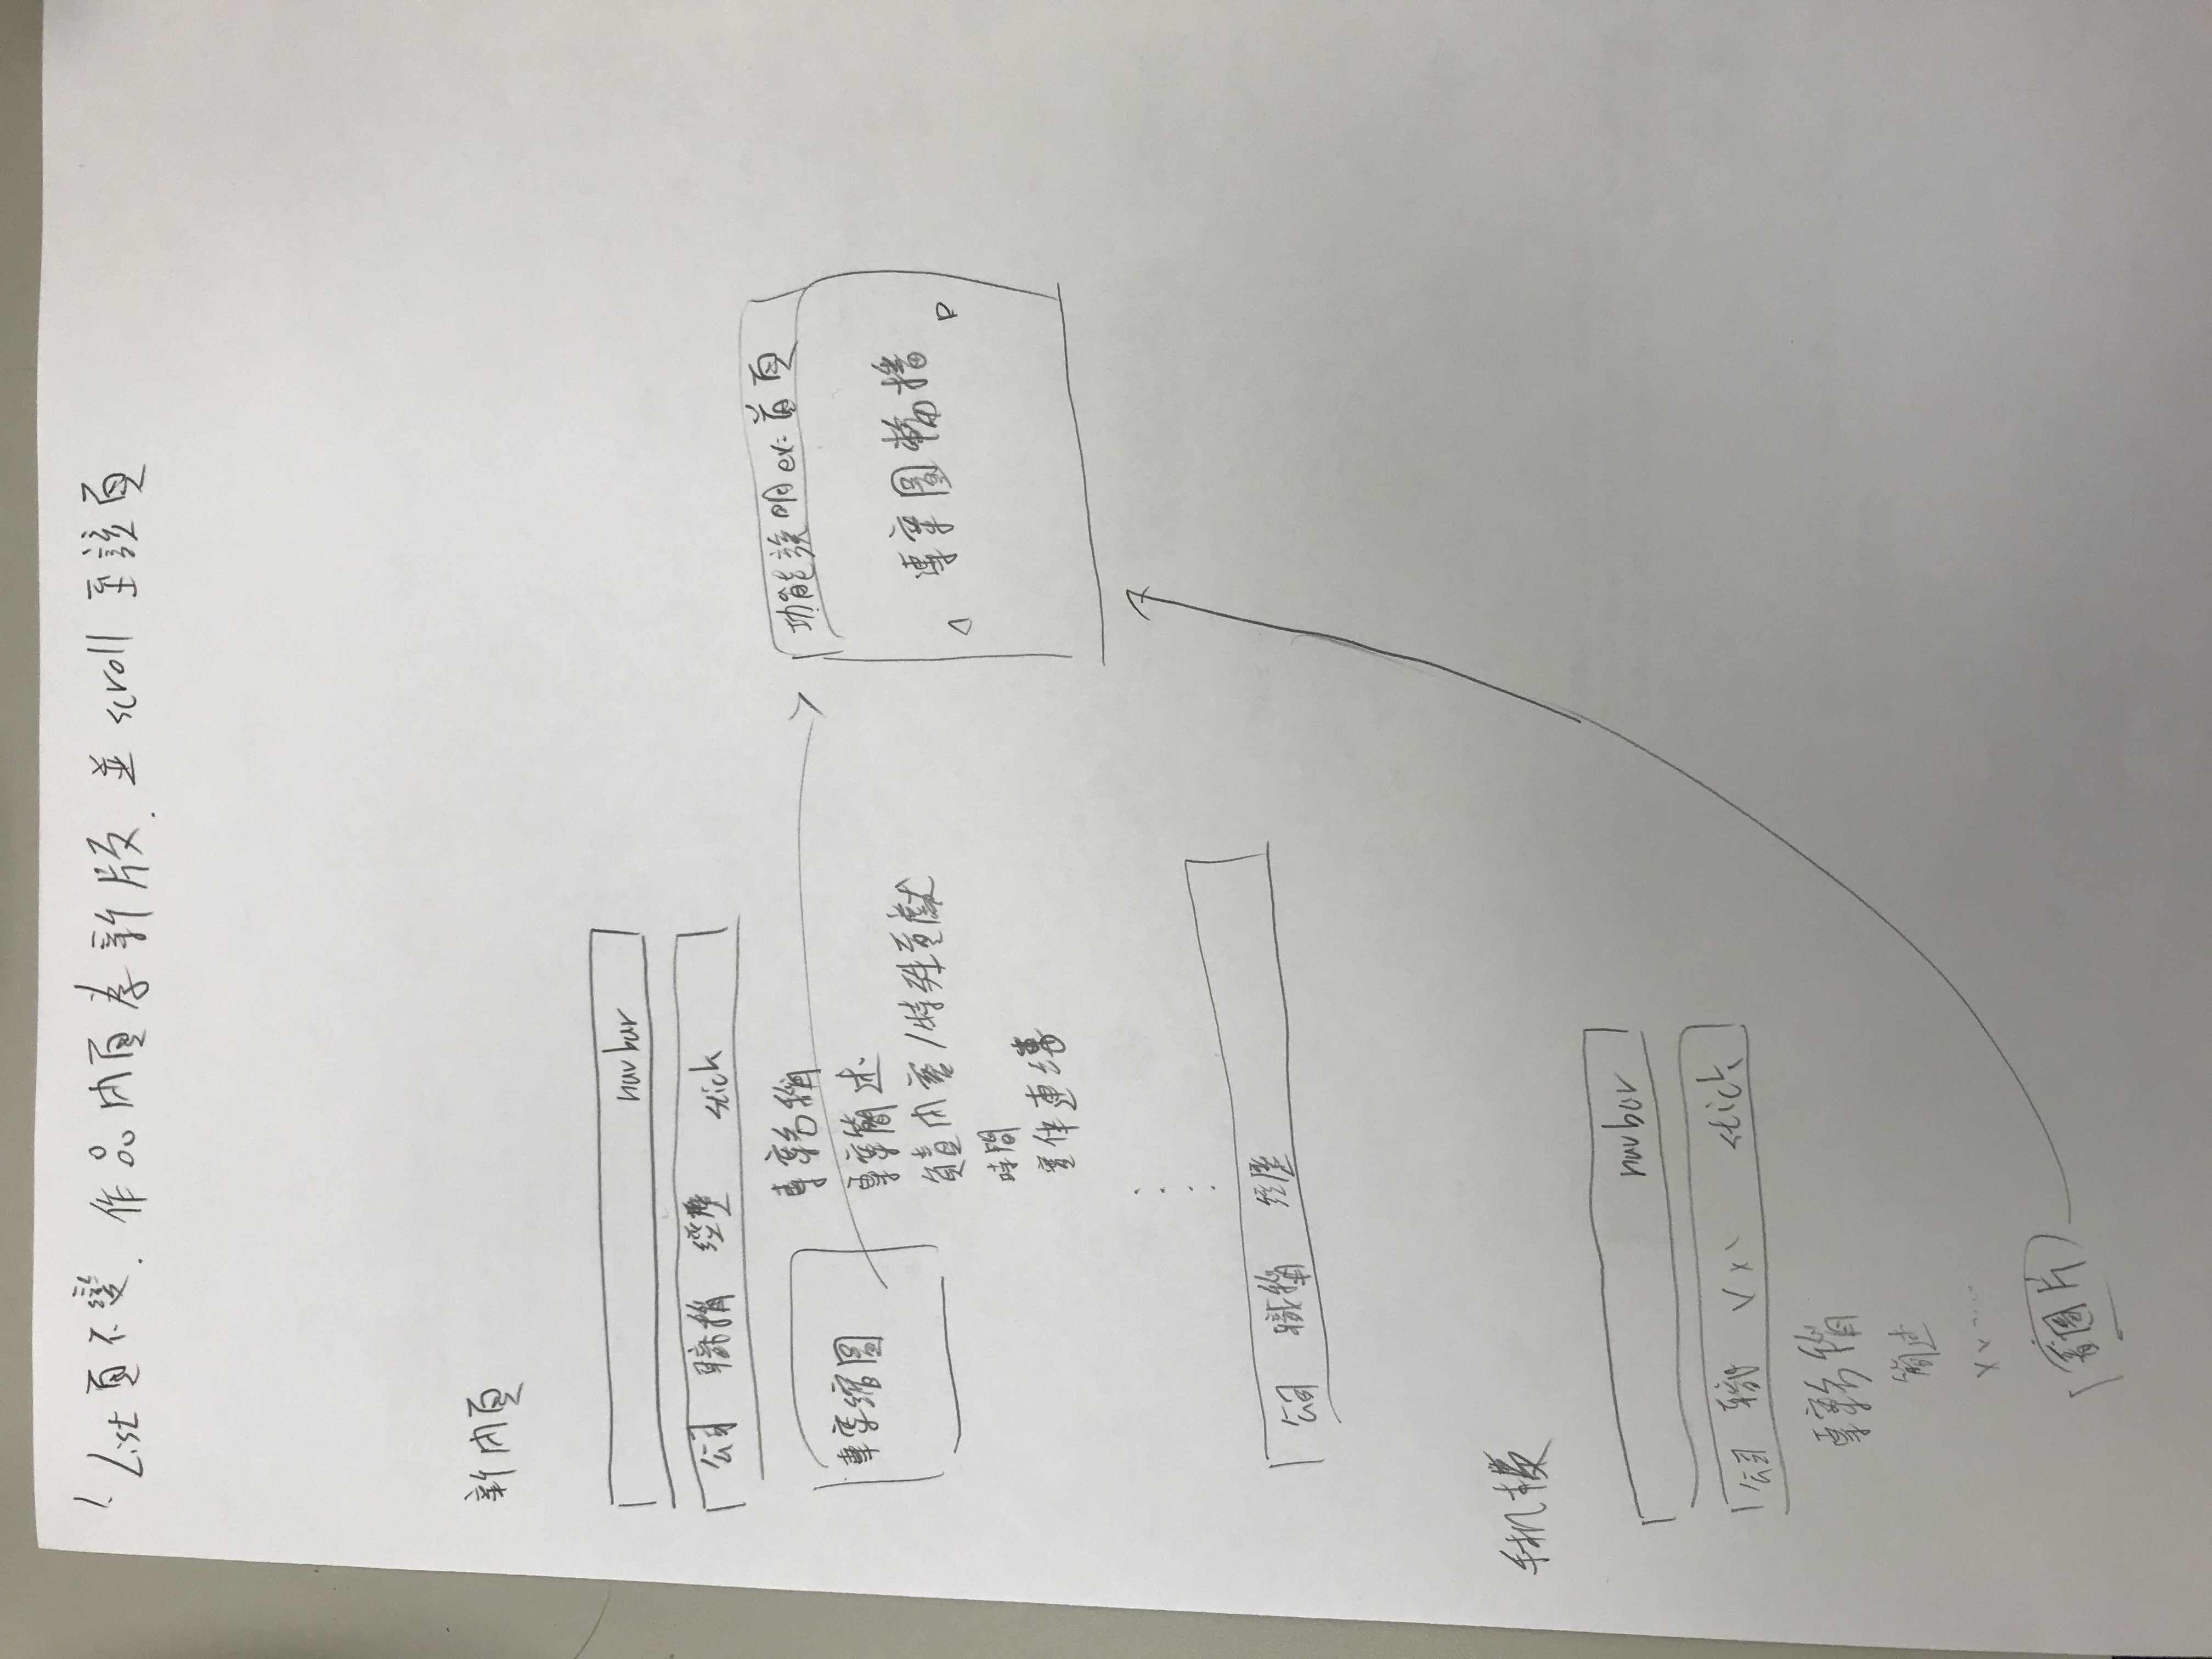 1. List頁不變. 作品內頁為新版. 並scroll至該頁
新內頁
navbar
公司 職稱 經歷 stick
專案縮圖
專案名稱
專案簡述
負責內容/特殊貢獻
時間
實作連結
功能說明 ex: 首頁
專案圖輪播
公司 職稱 經歷
手机板
navbar
公司 職 stick
專案名稱
簡述
看圖片